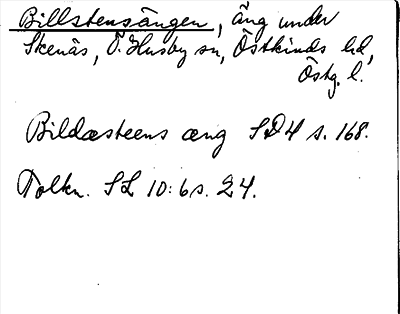 Billstensängen, äng under
Skenäs, Ö. Husby sn, Östkinds hd,
Östg. l.
Bildæsteens æng SD4 s. 168.
Tolkn. SL 10:6 s. 24.